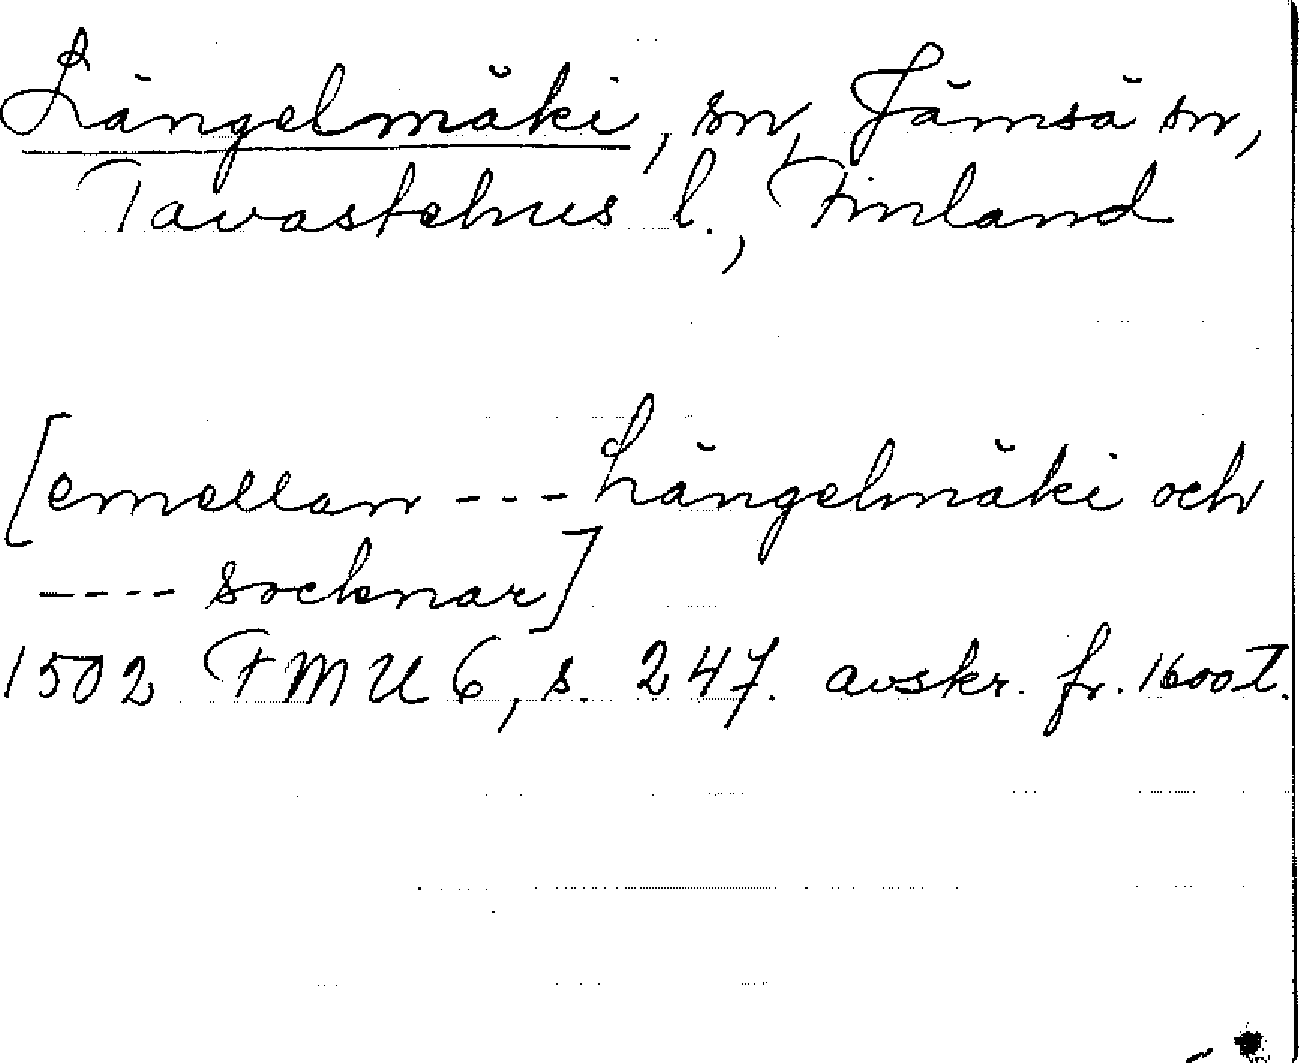 Längelmäki, sn, Jämsä sn,
Tavastehus l., Finland
[emellan --- Längelmäki och
---- socknar]
1502 FMU 6, s. 247. avskr. fr. 1600 t.